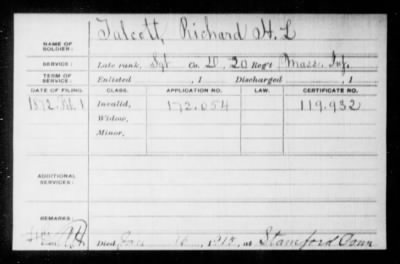 NAME OF SOLDIER: Talcott, Richard H. L
SERVICE: Late rank, Sgt Co. D, 20 Reg't Mass. Inf.
TERM OF SERVICE: Enlisted , 1 Discharged , 1
DATE OF FILING. CLASS. APPLICATION NO. LAW. CERTIFICATE NO.
1872. Feb. 1 Invalid, 172.054 119.932
Widow,
Minor,
ADDITIONAL SERVICES:
REMARKS:
Died Jan , at Stamford Conn